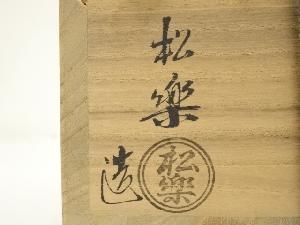 松樂
造
松樂